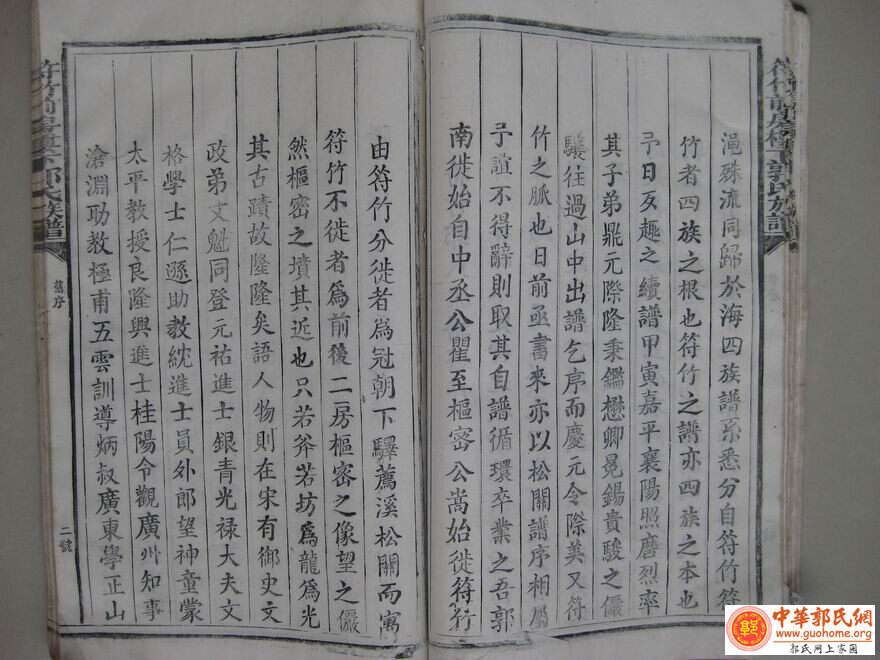 澠殊流同歸於海四族譜系悉分自符竹符
竹者四族之根也符竹之譜亦四族之本也
予日亥趣之續譜甲寅嘉平襄陽照磨烈率
其子弟鼎元際隆秉鑑懋卿冕錫貴駿之儼
驤往過山中出譜乞序而慶元令際美又符
竹之脈也日前亟書來亦以松關譜序相屬
予誼不得辭則取其自譜循環卒業之吾郭
南徙始自中丞公瞿至樞密公嵩始徙符竹
由符竹分徙者爲冠朝下驛薦溪松關而寓
符竹不徙者爲前後二房樞密之像望之儼
然樞密之墳其近也只若斧若坊爲龍爲光
其古蹟故隆隆矣語人物則在宋有御史文
政弟文魁同登元祐進士銀青光禄大夫文
格學士仁遜助教統進士員外郎望神童蒙
太平教授良隆興進士桂陽令觀廣州知事
滄淵助教極甫五雲訓導炳叔廣東學正山
舊序
二號
中華郭氏網
www.guohome.org
郭氏网上家園